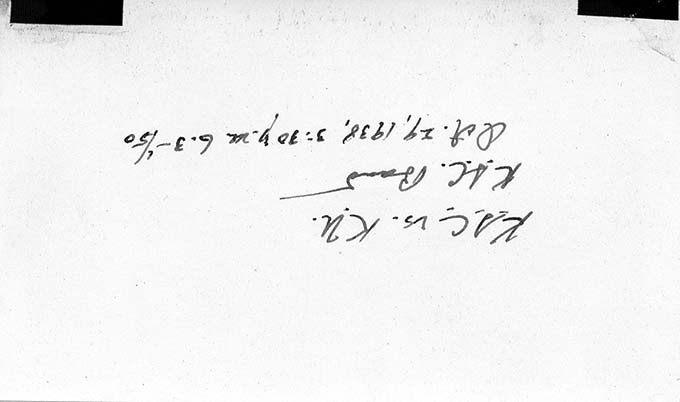 K.S.C. vs. K.U.
K.S.C. Band
Oct. 29, 1938, 3:30 p.m. 6.3 - 1/50